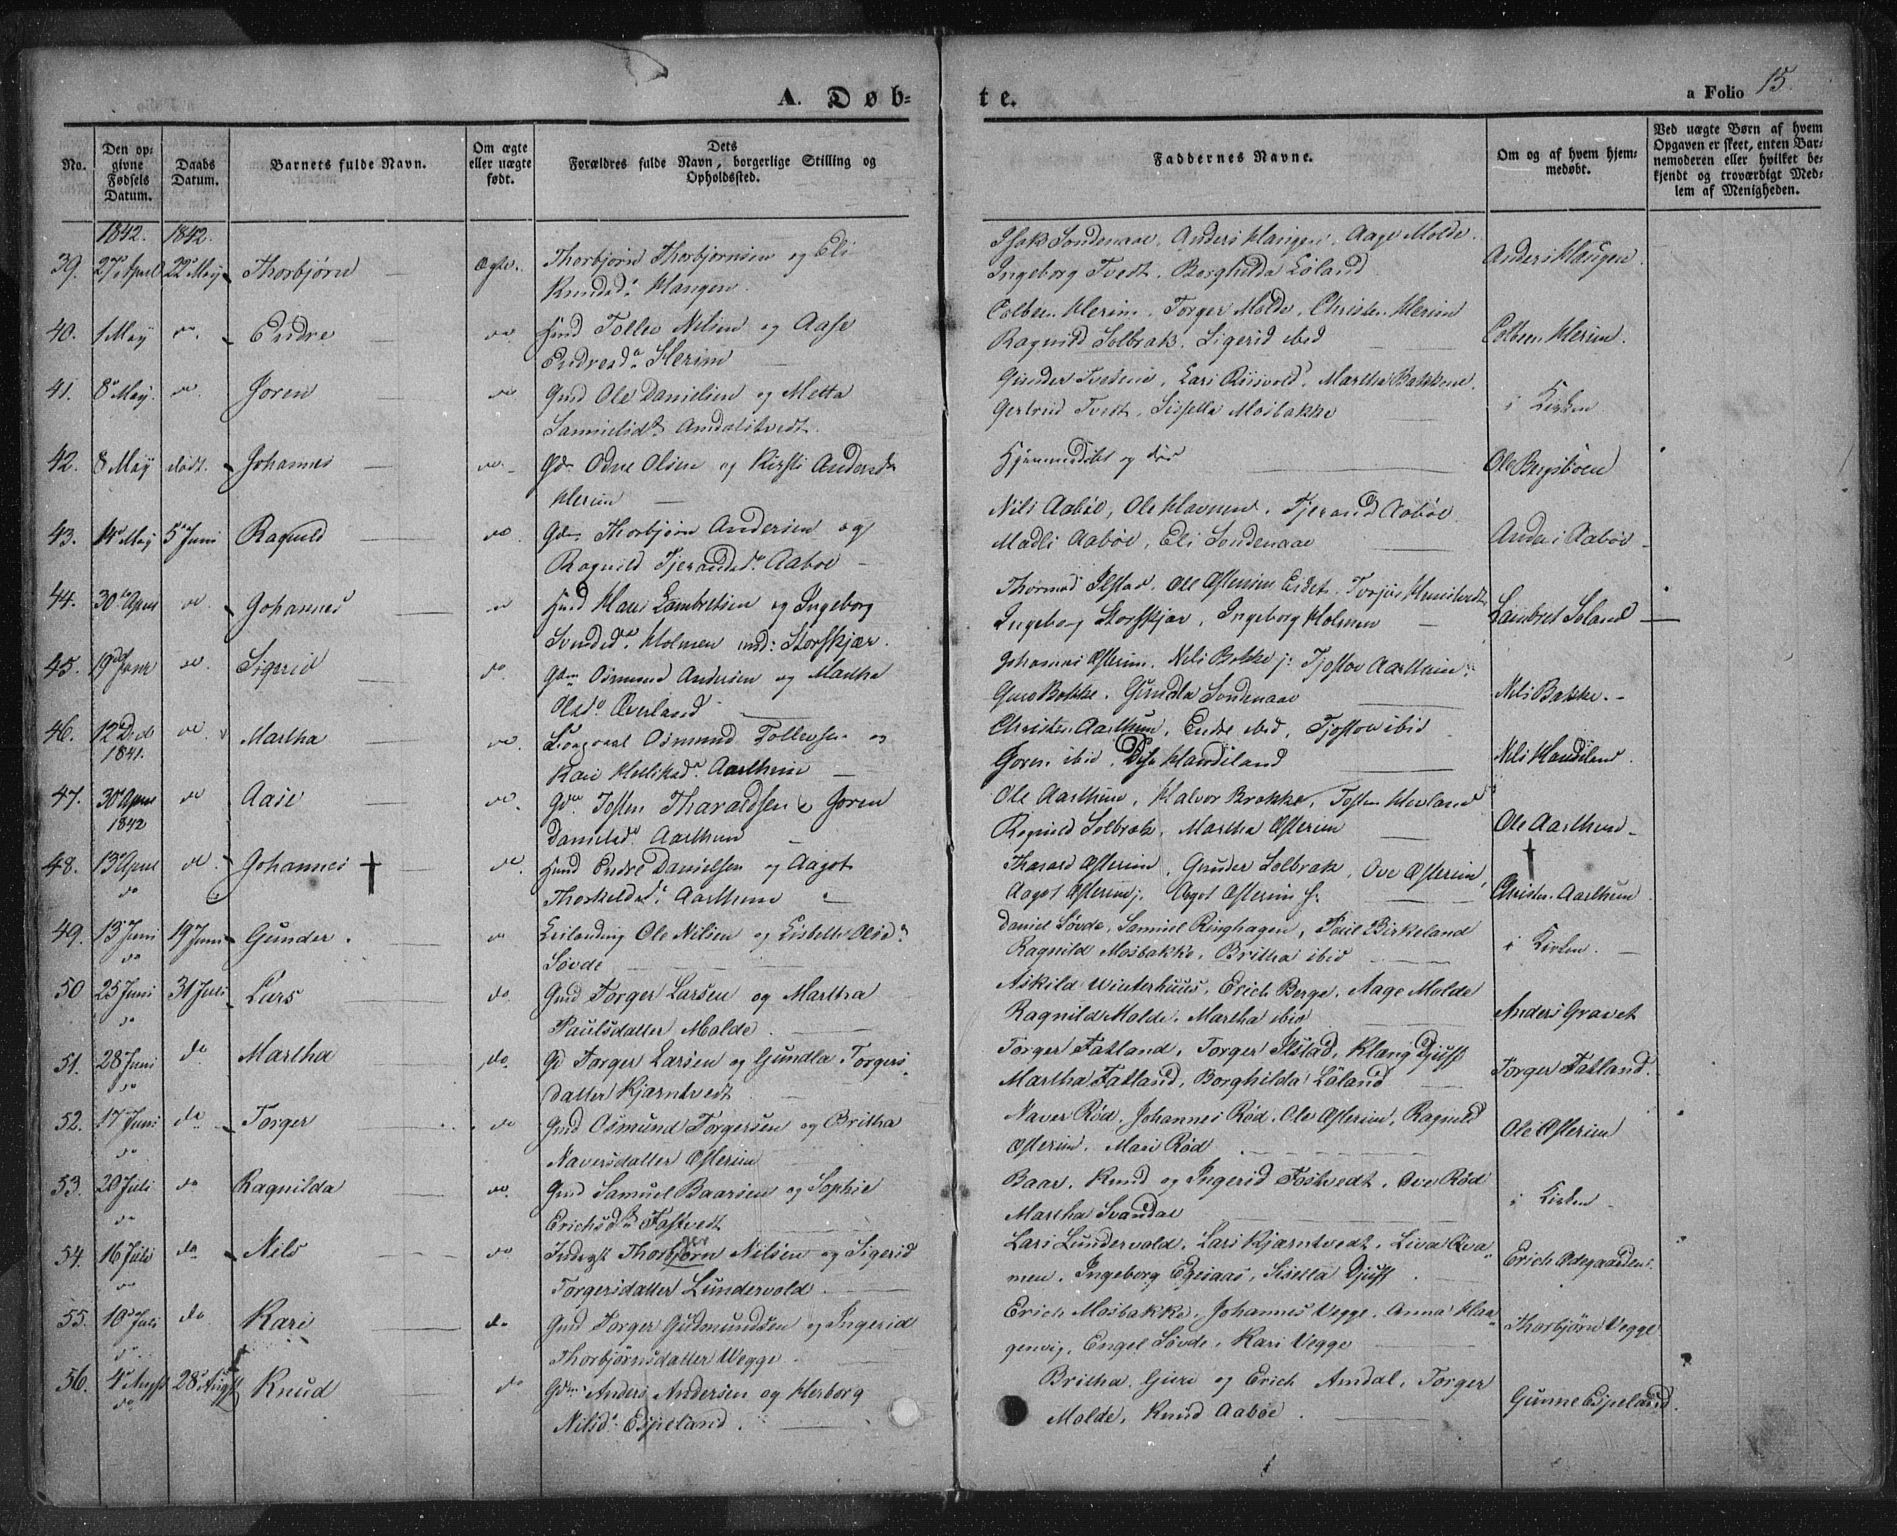 A. Døb-
te.
a Folio 15.
No.
Den op-
givne
Fødsels
Datum.
Daabs
Datum.
Barnets fulde Navn.
Om ægte
eller uægte
født.
Dets
Forældres fulde Navn, borgerlige Stilling og
Opholdssted.
Faddernes Navne.
Om og af hvem hjem-
medøbt.
Ved uægte Børn af hvem
Opgaven er skeet, enten Bar-
nemoderen eller hvilket be-
kjendt og troværdigt Med-
lem af Menigheden.
1842. 1842.
39. 27 April 22 May Thorbjørn Ægte. Thorbjørn Thorbjørnsen og Eli
Knudsd. Haugen.
Isak Sondenaae, Anders Haugen, Aage Molde.
Ingeborg Tvedt, Borghilda Løland
Anders Haugen.
40. 1 May do. Endre do Hmd Tollev Nilsen og Aase
Endresd. Herim
Torger Molde, Christen Herim
Ragnild Solbrak, Sigerid ibid
Herim.
41. 8 May do. Joren do Gmd Ole Danielsen og Metta
Samuelsd. Amdalstvedt.
Gunder, Martha Bakkene,
Gertrud Tvedt, Sissella Mosbakke
i Kirken
42. 8 May død. Johannes do. Gdm Odne Olsen og Kirsti Andersd.
Herim
Hjemmedøbt og død
Ole Bergsböen
43. 14 May 5 Juni Ragnild do. Gdm Thorbjørn Andersen og
Ragnild Tjerandsd. Aabøe
Nils Aabøe, Ole Havnen, Tjerand Aabøe
Madli Aabøe, Eli Sondenaae
Anders Aabøe
44. 30 April do. Johannes do Hmd Hans Lambretsen og Ingeborg
Svendsd. Holmen Storskjær.
Thormod Ilstad, Ole Østerim
Ingeborg Storskjær, Ingeborg Holmen
Lambret Soland
45. 19 Janr do. Sigerid do. Gdm Osmund Andersen og Martha
Olsd. Øverland
Johannes Østerim, Nils Bakke j: Tjostov Aarthun
Guro Bakke, Gundla Sondenaae
Nils Bakke.
46. 12 Decb
1841. do. Martha do. Osmund Tollevsen og
Kari Aarthun
Christen Aarthun, Endre ibid, Tjostov ibid
Joren ibid, Handeland
Nils Handeland.
47. 30 April
1842 do Aase do. Gdm Tosten Tharaldsen og Joren
Danielsd. Aarthun
Ole Aarthun, Halvor Brakke, Tosten Hovland
Ragnild Solbrak, Martha Østerim
Ole Aarthun
48. 13 April
do do Johannes † do. Hmd Endre Danielsen og Aagot
Thorkelsd. Aarthun
Tharald Østerim, Gunder Solbrak, Ove Østerim,
Aagot Østerim j. Aagot Østerim
†
Christen Aarthun
49. 13 Juni
do 19 Juni Gunder. do Leilænding Ole Nilsen og Lisbeth Olsd.
Søvde
Daniel Søvde, Samuel Ringhagen, Poul Birkeland
Ragnild Mosbakke, Britha ibid
i Kirken
50 25 Juni
do 31 Juli Lars do. Gmd Torger Larsen og Martha
Paulsdatter Molde.
Askild Winterhuus, Erich Berge, Aage Molde
Ragnild Molde, Martha ibid
Anders Gravet
51. 28 Juni
do do Martha do. Gd Torger Larsen og Gundla Torgers
datter Kjærntvedt
Torger Fatland, Torger Ilstad, Klang Djuff
Martha Fatland, Borghilda Løland
Torger Fatland.
52. 17 Juni
do do Torger do Gmd Osmund Torgersen og Britha
Naversdatter Østerim
Naver Rød, Johannes Rød, Ole Østerim, Ragnild
Østerim, Mari Rød
Ole Østerim
53. 20 Juli
do do Ragnilda do. Gmd Samuel Baarsen og Sophie
Erichsd. Fostvedt
Baar, Knud og Ingerid Fostvedt, Ove Rød
Martha Svandal
i Kirken
54. 16 Juli
do do Nils do Inderst Thorbjørn Nilsen og Sigerid
Torgersdatter Lundervold.
Lars Lundervold, Lars Kjærntvedt, Liva Qva-
men, Ingeborg Egeraas, Sisella Djuff
Erich Ødegaarden.
55. 10 Juli
do do Kari do Gmd Torger Gudmundsen og Ingerid
Thorbjørnsdatter Vegge
Erich Mosbakke, Johannes Vegge, Anna Haa-
genvig, Engel Søvde, Kari Vegge
Thorbjørn Vegge
56. 4 Augst
do 28 Augst Knud do Gdm Anders Andersen og Herborg
Nilsd. Espeland.
Britha, Guri og Erich Amdal, Torger
Molde, Knud Aabøe.
Gunne Espeland.